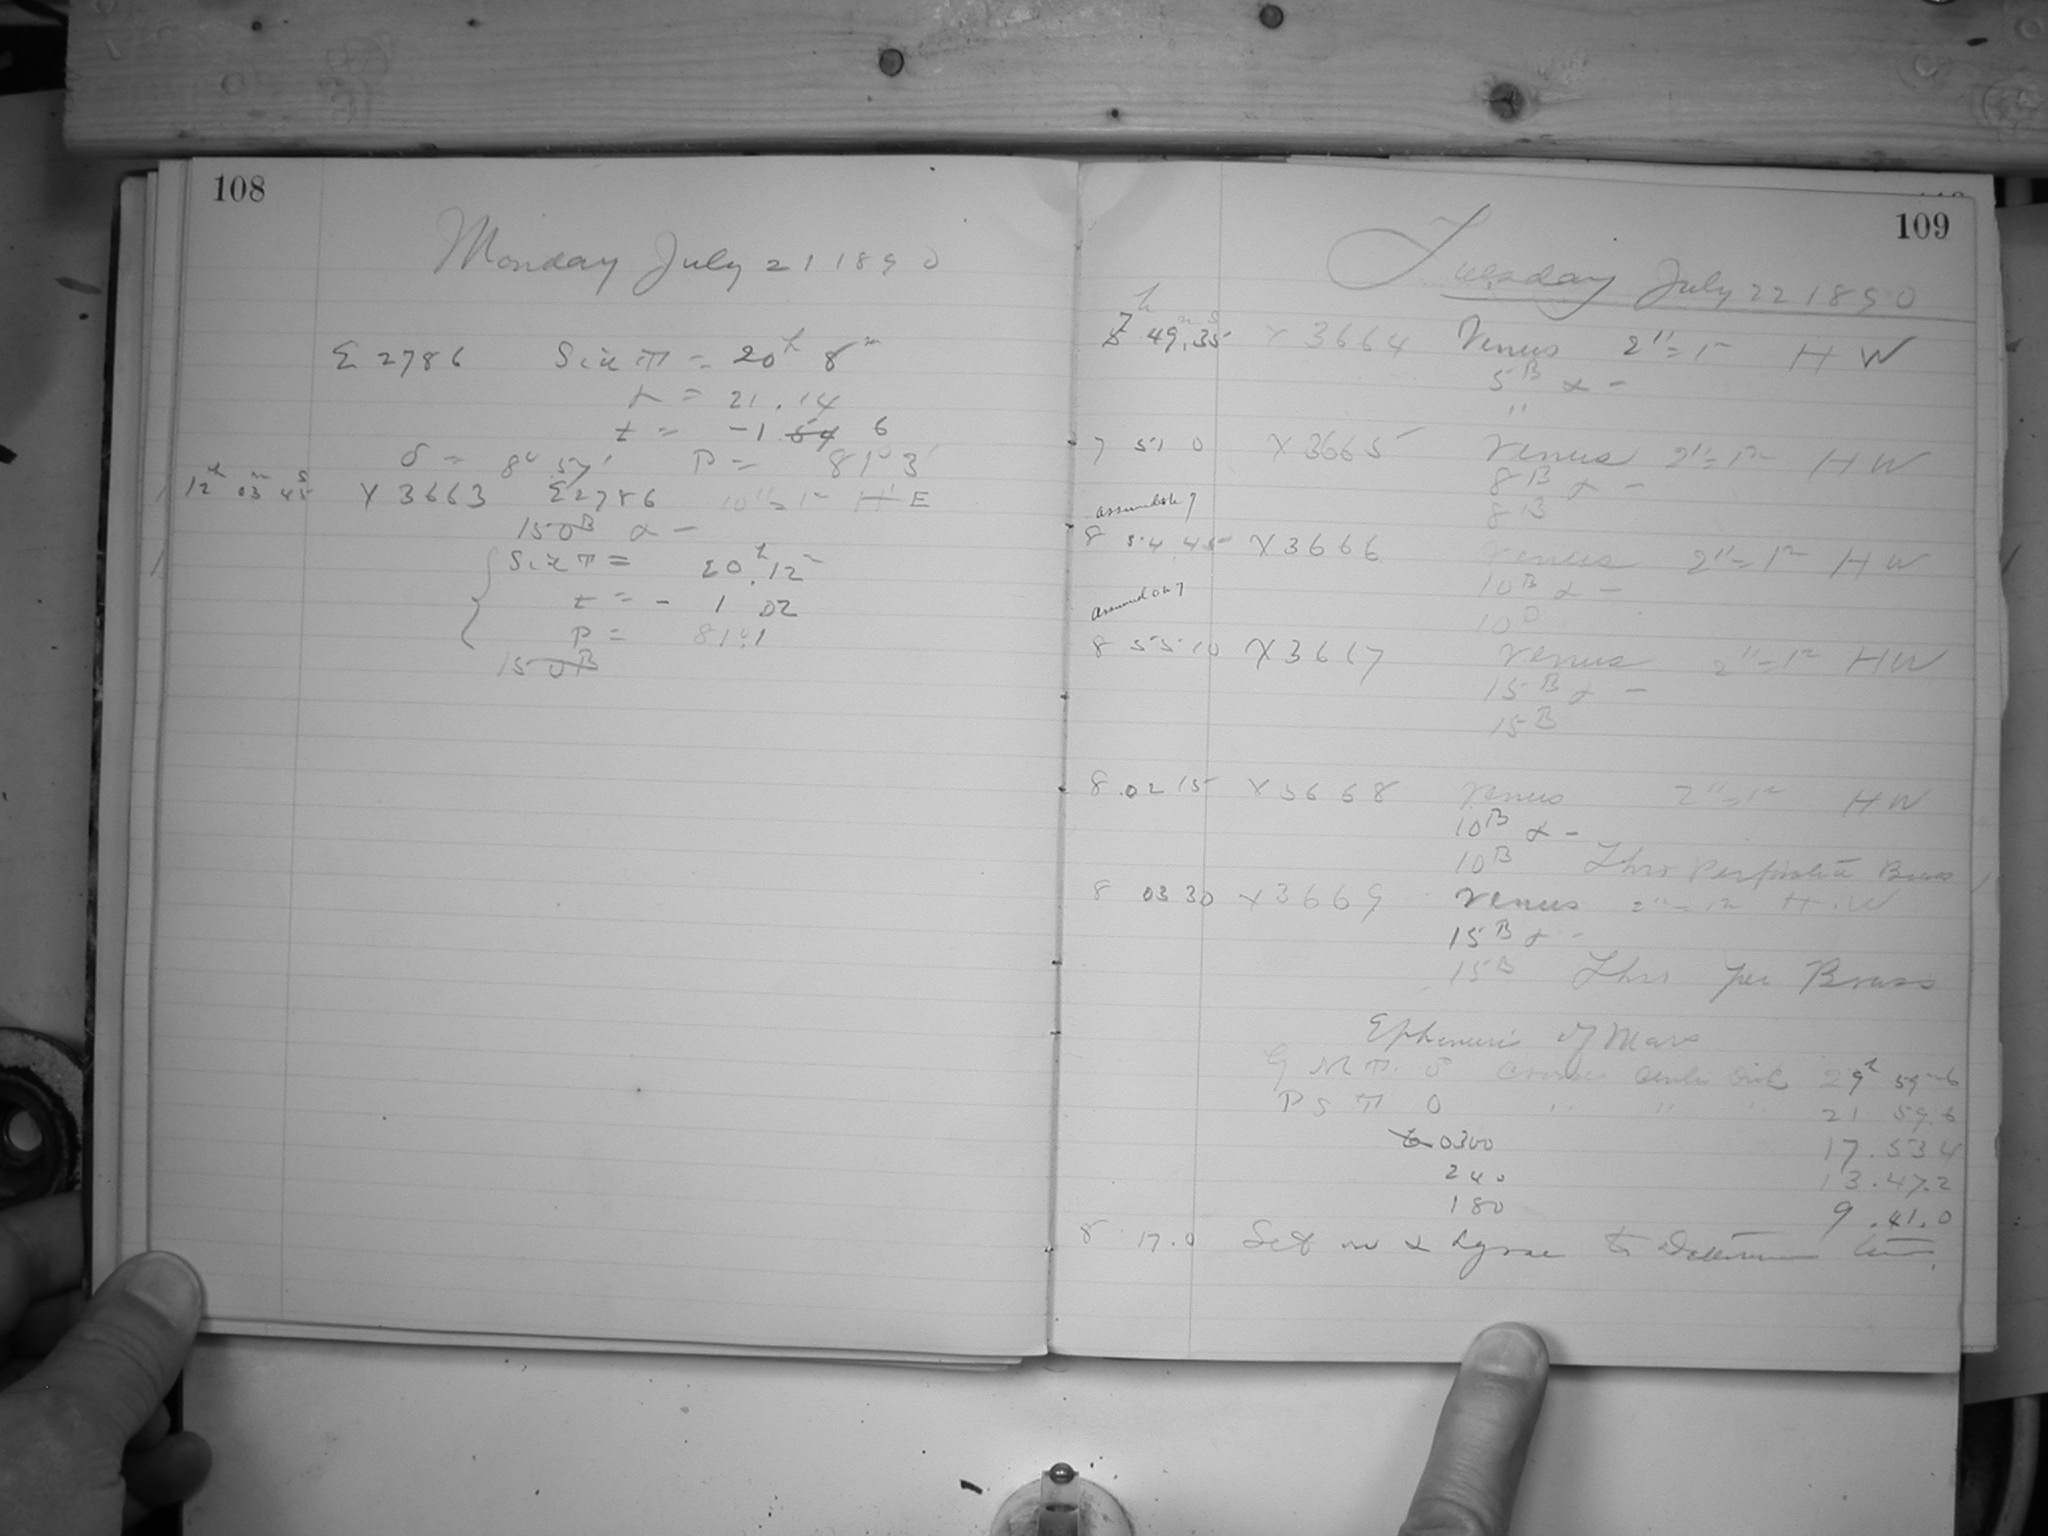 108
Monday July 21 1890
Σ 2786 Sid T = 20h 8m
α = 21.14
t = -1.54 6
δ = 8° 57' P = 81° 3'
12h 03m 45s X 3663 Σ2786 10"=1m H E
150B α -
Sid T = 20h.12m
t = - 1 02
P = 81°.1
150B
109
Tuesday July 22 1890
7h 49m.35s X 3664 Venus 2"=1m H W
5B α -
"
7 51 0 X3665 Venus 2"=1m H W
8B α -
8B
assumed ok 7
8 54 45 X3666 Venus 2"=1m H W
10B α -
10B
assumed ok 7
8 55 10 X3667 Venus 2"=1m HW
15B α -
15B
8 02 15 X3668 Venus 2"=1m H W
10B α -
10B Thro Brass
8 03 30 X3669 Venus 2"=1m H.W
15B α -
15B Thro per Brass
Ephemeris of Mars
G M T. 0 crosses center disk 29h 59m6
P S T 0 " " " 21 59.6
0300 17.53.4
240 13.47.2
180 9.41.0
8 17.0 Set on α Lyrae to Determine